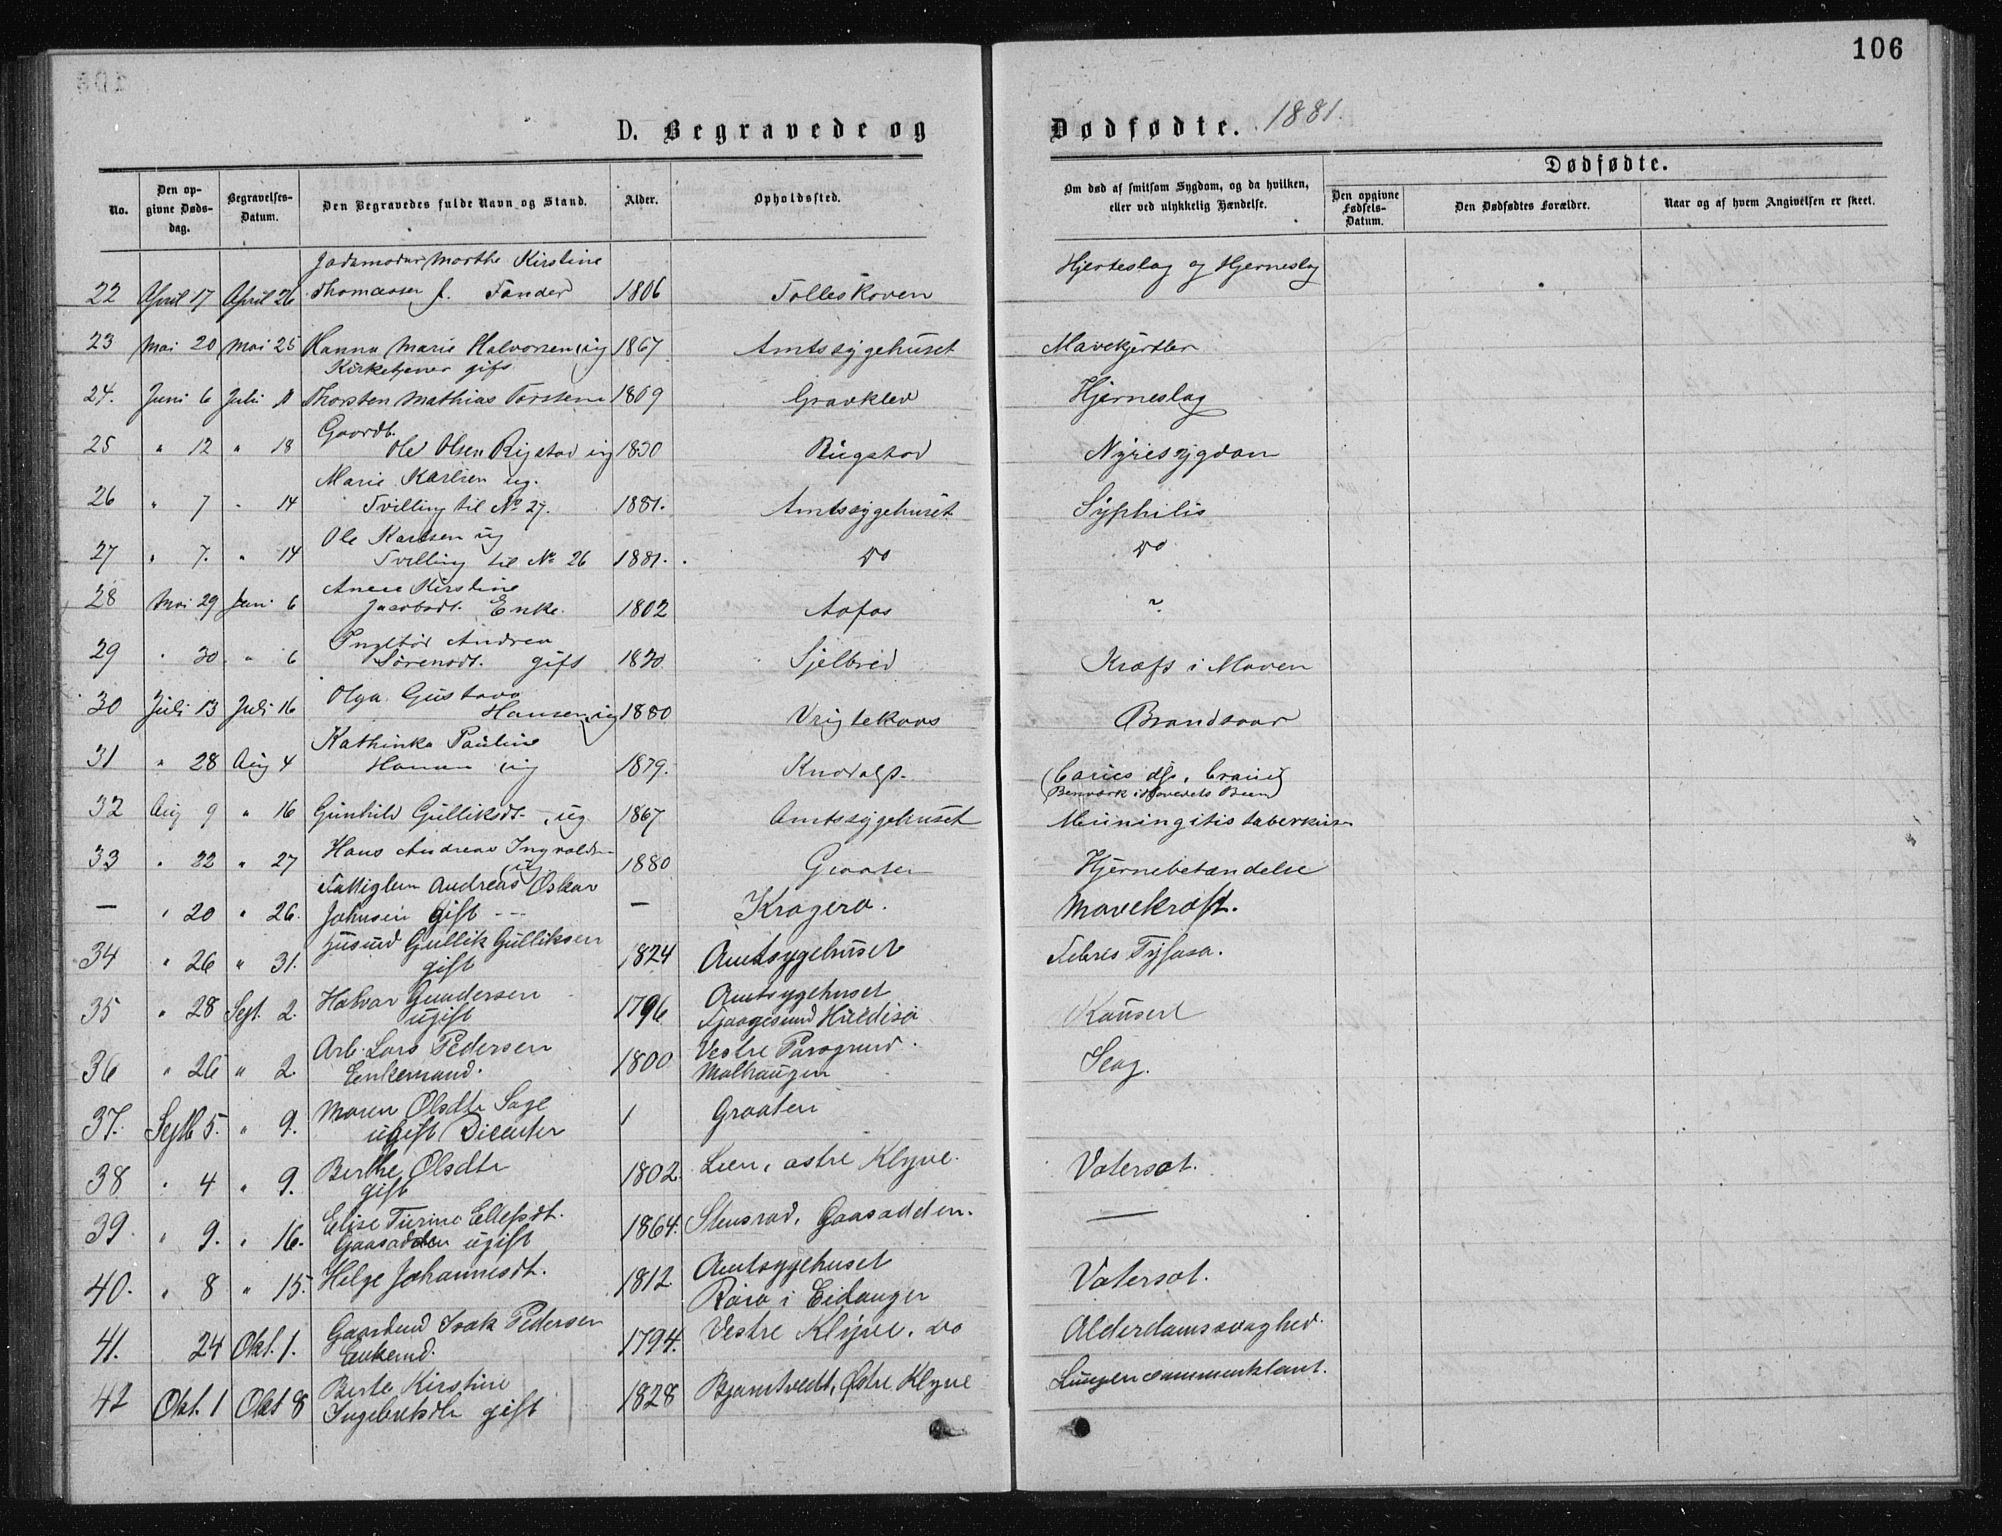 106
D. Begravede og Dødfødte. 1881.
No.
Den opgivne Dødsdag.
Begravelses-Datum.
Den Begravedes fulde Navn og Stand.
Alder.
Opholdsted.
Om død af smitsom Sygdom, og da hvilken, eller ved ulykkelig Hændelse.
Dødfødte.
Den opgivne Fødsels-Datum.
Den Dødfødtes Forældre.
Naar og af hvem Angivelsen er skeet.
Jordmoder Marthe Kirstine
22 April 17 April 26 Thomassen f. 1806 Tolleskoven Hjerteslag og Hjerneslag
23 Mai 20 Mai 25 Hanna Marie Halvorsen, ug 1867 Amtssygehuset Mavekjertler
Kirketjener gift
24. Juni 6 Juli 11 Thorsten Mathias 1809 Gravklev Hjerneslag
Gaardb.
25 " 12 " 18 Ole Olsen Rigstad ug 1830 Rugstad Nyresygdom
Marie Karlsen ug.
26 " 7 " 14 Tvilling til No 27. 1881. Amtssygehuset Syphilis
Ole Karlsen ug
27 " 7. " 14 Tvilling til No 26 1881. Do Do
Anne Kirstine
28 Mai 29 Juni 6 Jacobsdt. Enke. 1802 Aafos ?
Andrea
29 " 30 " 6 Sørensdt. gift 1830 Sjelbred Kræft i Maven
Olga Gustava
30 Juli 13 Juli 16 Hansen, ug 1880 Brandsaar
Kathinka Pauline
31 " 28 Aug 4 Hansen ug 1879. Caries
(Benværk i Hovedets Been)
32 Aug 9 " 16 Gunhild Gulliksdt. ug 1867 Amtssygehuset
Hans Andreas Ingvalds
33 " 22 " 27 ug 1880 Graaten Hjernebetændelse
Fattiglem Andreas Oskar
— " 20 " 26. Johnsen gift — Kragerø. Mavekræft.
Husmd Gullik Gulliksen
34 " 26 " 31. gift 1824 Amtsygehuset Febris
35 " 28 Sept. 2. Halvor Gundersen
ugift 1796 Amtsygehuset
36 " 26 " 2. Arb. Lars Pedersen
Enkemand. 1800 Vestre Porsgrund.
Slag.
37. Septb 5. " 9. Maren Olsdtr
ugift 1 Graaten
38 " 4 " 9. Berthe Olsdtr
gift 1802. Lien, østre Klyve. Vatersot.
39 " 9. " 16. Elise Turine Ellefsdt.
Gaasodden ugift 1864. Stensrød, Gaasodden. —
40. " 8 " 15. Helge Johannesdt. 1812 Amtsygehuset
i Eidanger Vatersot.
41. 24 Okt. 1. Gaardmd Isak Pedersen
Enkemd. 1794. Vestre Klyve. Do Alderdomssvaghed.
42 Okt. 1 Okt 8 Berte Kirstine
Ingebretsdtr gift 1828 Bjørntvedt, Østre Klyve